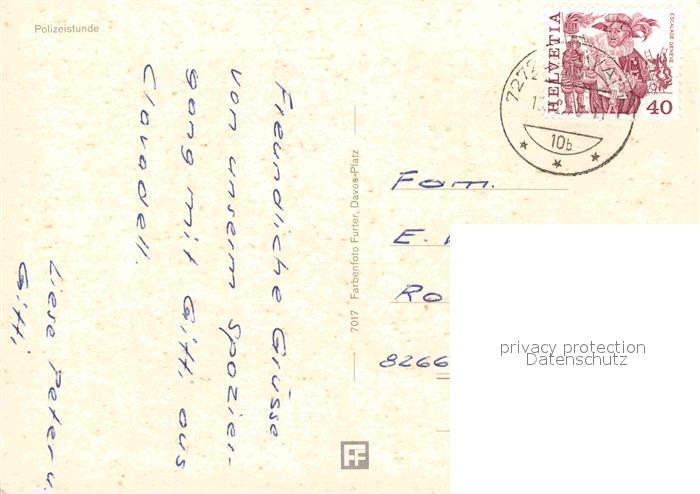 Polizeistunde
Freundliche Grüsse
von unserm Spazier-
gang mit Gitti aus
Clavadell.
Liese Peter u.
Gitti
7017 Farbenfoto Furter, Davos-Platz
HELVETIA
ESCALADE GENÈVE
40
7272
10b
Fam.
E.
Ro
8266
FF
privacy protection
Datenschutz